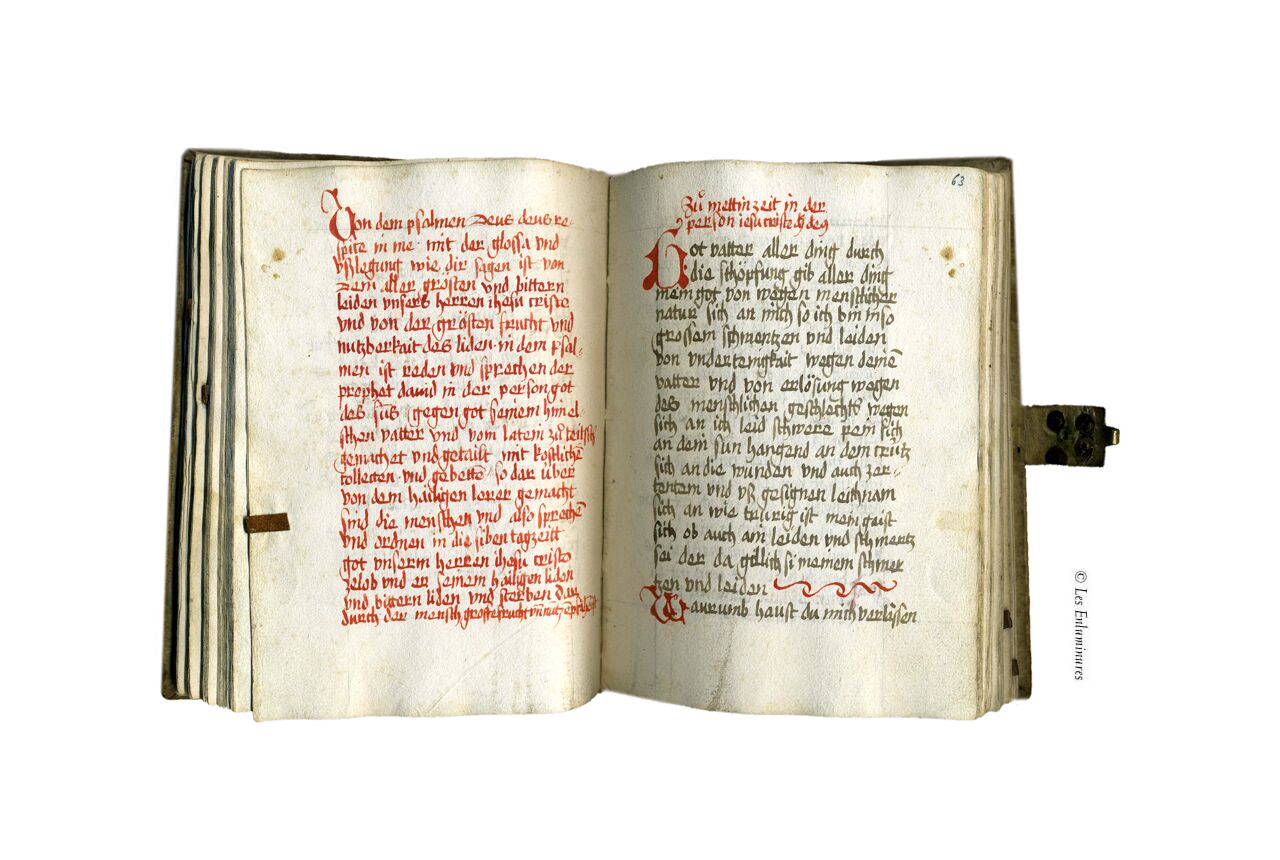 Von dem psalmen Deus deus re-
spice in me mit der glossa vnd
vßlegung wie dir sagen ist von
Dem aller grosten vnd bittern
leiden vnsers herren ihesu cristo
vnd von der grösten frucht vnd
nutzberkait des liden in dem psal-
men ist reden vnd sprechen der
prophet dauid in der person got
des suns gegen got seinem himel
schen vatter vnd vom latein zů teütsch
gemachet vnd getailt mit kostlichē
collecten vnd gebette so dar über
von dem hailigen lerer gemacht
sind die menschen vnd also sprechē
vnd ordnen in die siben tagzeitt
got vnserm herren ihesu cristo
ze lob vnd er seinem hailigen liden
vnd bittern liden vnd sterben dar
durch der mensch groste frucht vnd nutz
63
Zů mettinzeit in der
person iesu criste
Got vatter aller ding durch
die schöpfung gib aller ding
mein got von wegen menschlicher
natur sich an mich so ich bin in so
grossem schmertzen vnd leiden
von vndertenigkait wegen deinē
vatter vnd von erlösung wegen
des menschlichen geschlechtz wegen
sich an ich leid schwere pein sich
an dem sun hangend an dem crütz
sich an die wunden vnd auch zer-
tentem vnd vß gesignen leichnam
sich an wie trurig ist mein gaist
sich ob auch ain leiden vnd schmertz
sei der da gillich si meinem schmer
tzen vnd leiden
Waurumb haust du mich verlässen
© Les Enluminures